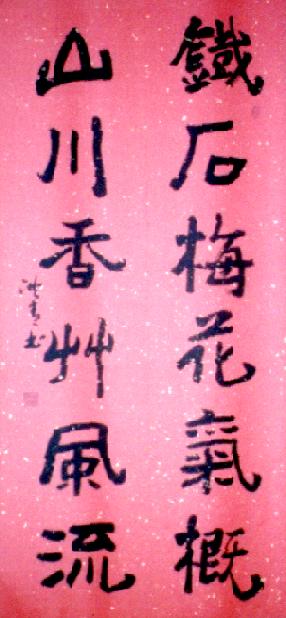 鐵石梅花氣概
山川香艸風流